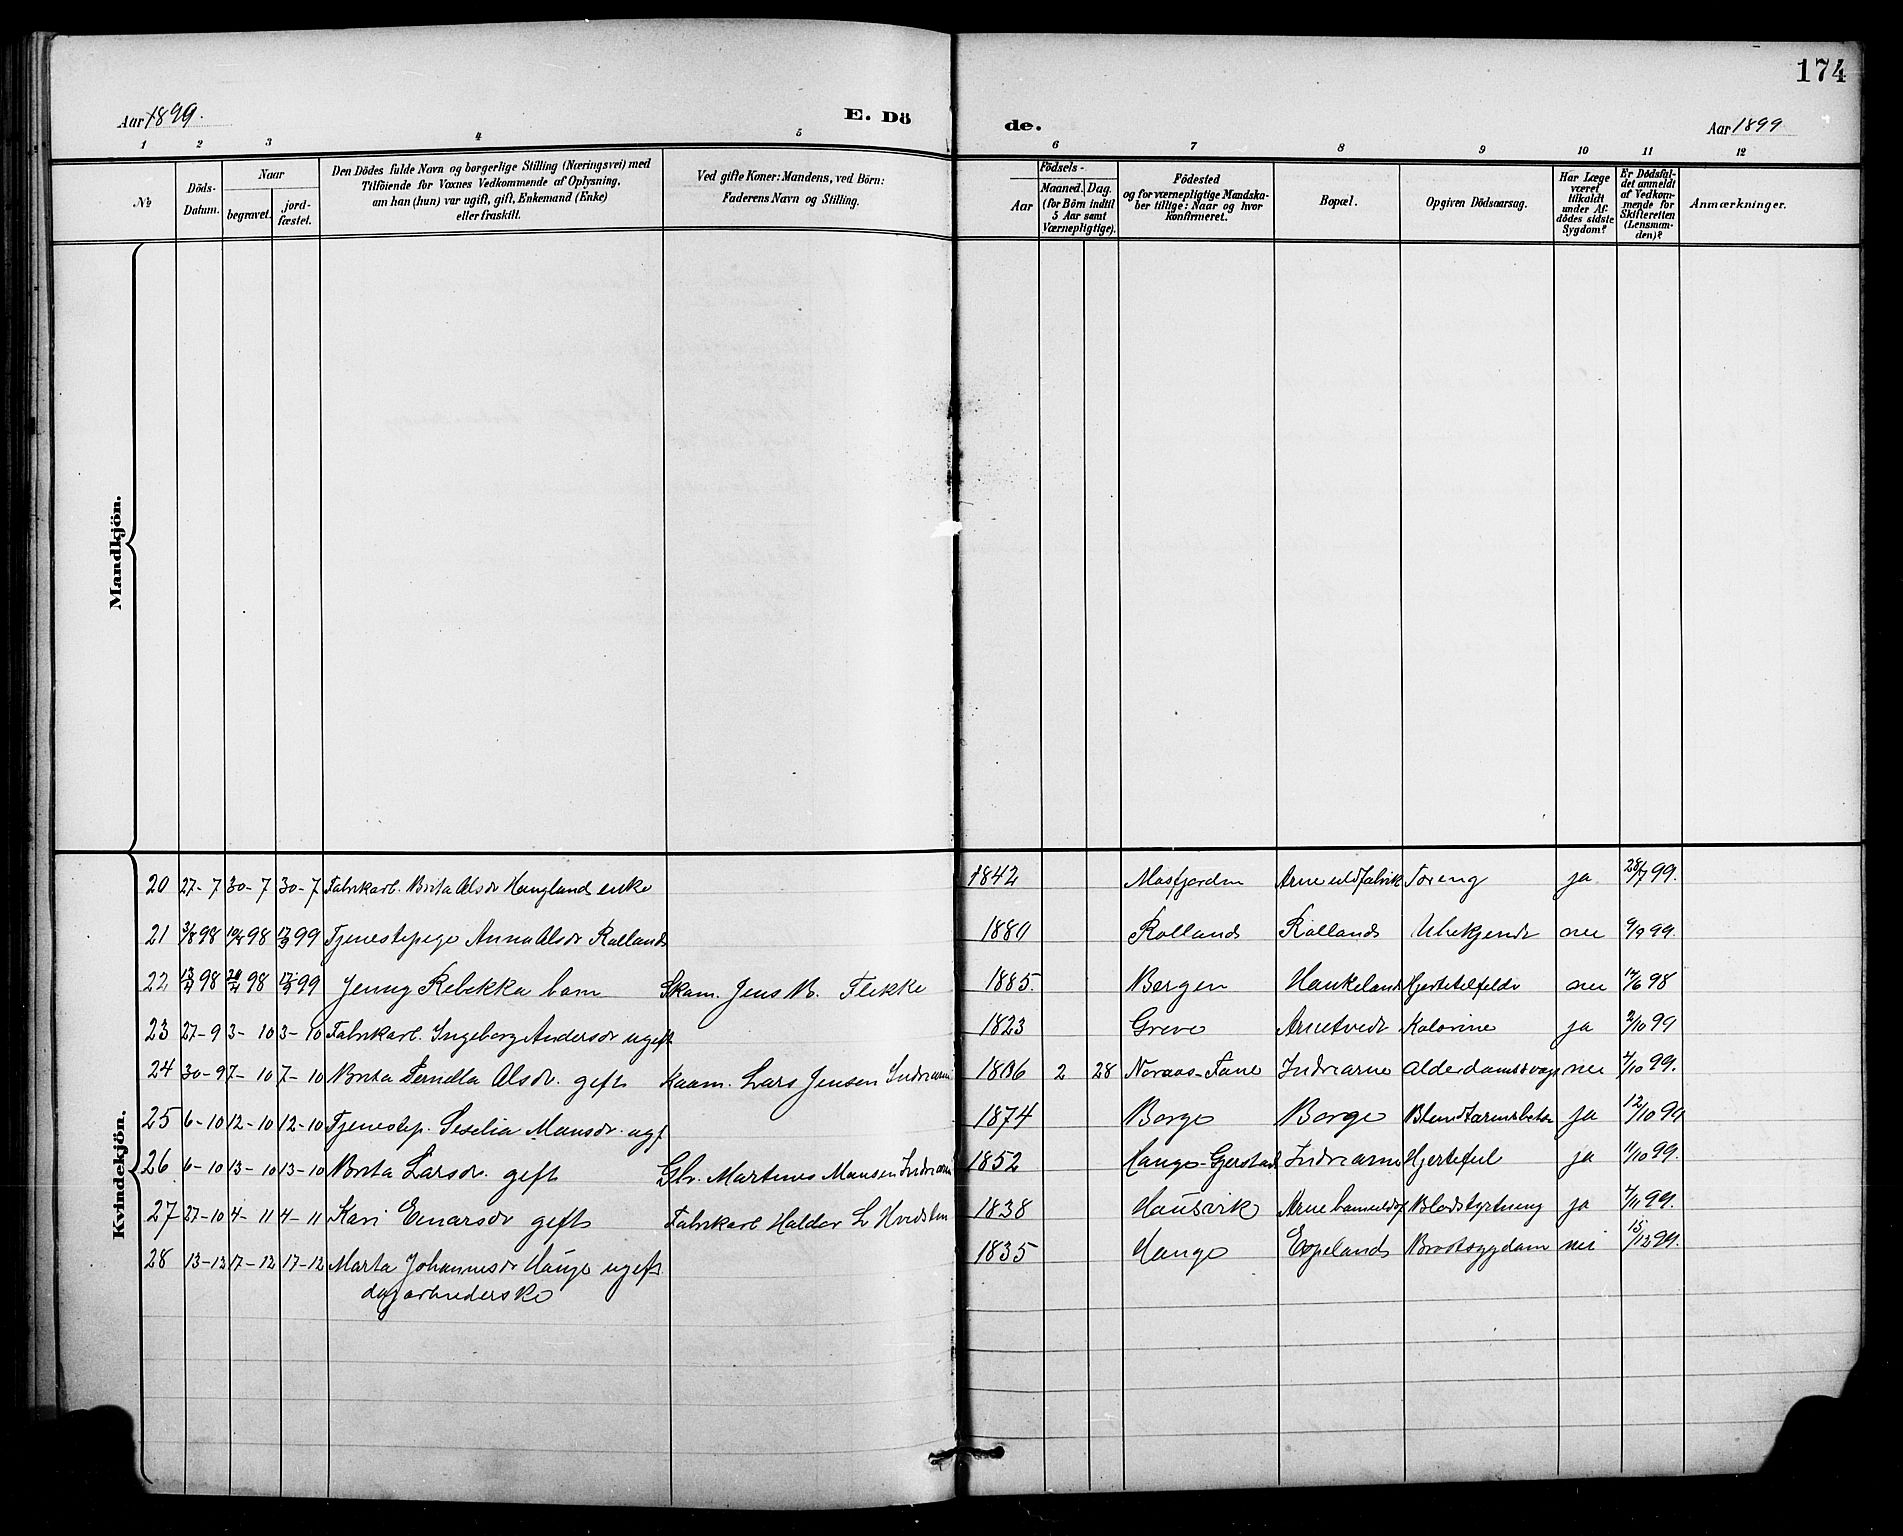 174
Aar 1899. E. Dö de. Aar 1899
1 2 3 4 5 6 7 8 9 10 11 12
№
Döds-Datum.
Naar
begravet.
jord-fæstet.
Den Dödes fulde Navn og borgerlige Stilling (Næringsvei) med
Tilföiende for Voxnes Vedkommende af Oplysning,
om han (hun) var ugift, gift, Enkemand (Enke)
eller fraskilt.
Ved gifte Koner: Mandens, ved Börn:
Faderens Navn og Stilling.
Födsels-
Aar
Maaned. Dag.
(for Börn indtil
5 Aar samt
Værnepligtige).
Födested
og for værnepligtige Mandska-
ber tillige: Naar og hvor
konfirmeret.
Bopæl.
Opgiven Dödsaarsag.
Har Læge
været
tilkaldt
under Af-
dödes sidste
Sygdom?
Er Dödsfal-
det anmeldt
af Vedkom-
mende for
Skifteretten
(Lensman-
den)?
Anmærkninger.
Mandkjön.
Kvindekjön.
20 27-7 30-7 30-7 Fabrikarb. Brita Olsdr Hauglands enke 1842 Masfjorden Arne uldfabrik Tæring ja 28/7 99.
21 3/8 98 10/8 98 17/9 99 Tjenestepige Anna Olsdr Rollands 1880 Rollands Rollands Ubekjendt nei 9/9 99.
22 98 98 99 Jenny Rebekka barn Skom. Jens B. Flikke 1885. Bergen Haukelands Hjertetilfelde nei 98
23 27-9 3-10 3-10 Fabrikarb. Ingeborg Andersdr ugift 1823 Greve Arnetvedt Kolorine ja 2/10 99
24 30-9 7-10 7-10 Brita Pernella Olsdr. gift Kaarm. Lars Jensen Indrearne 1806 2 28 Noraas-Fane Indrearne Alderdomssvag nei /10 99.
25 6-10 12-10 12-10 Tjenestep. Seselia Monsdr. ugf 1874 Borge Borge Blindtarmsbetæn ja 12/10 99
26 6-10 13-10 13-10 Brita Larsdr. gift Gbr. Martines Monsen Indrearne 1852 Hauge-Gjerstad Indrearne Hjertefeil ja 11/10 99.
27 27-10 4-11 4-11 Kari Einarsdr gift Fabrikarb. Haldor L Hvidsten 1838 Hausvik Arne Blodstyrtning ja /11 99.
28 13-12 17-12 17-12 Marta Johannesdr Hauge ugift 1835 Hauge Espelands Brystsygdom nei 15/12 99.
dagarbeiderske